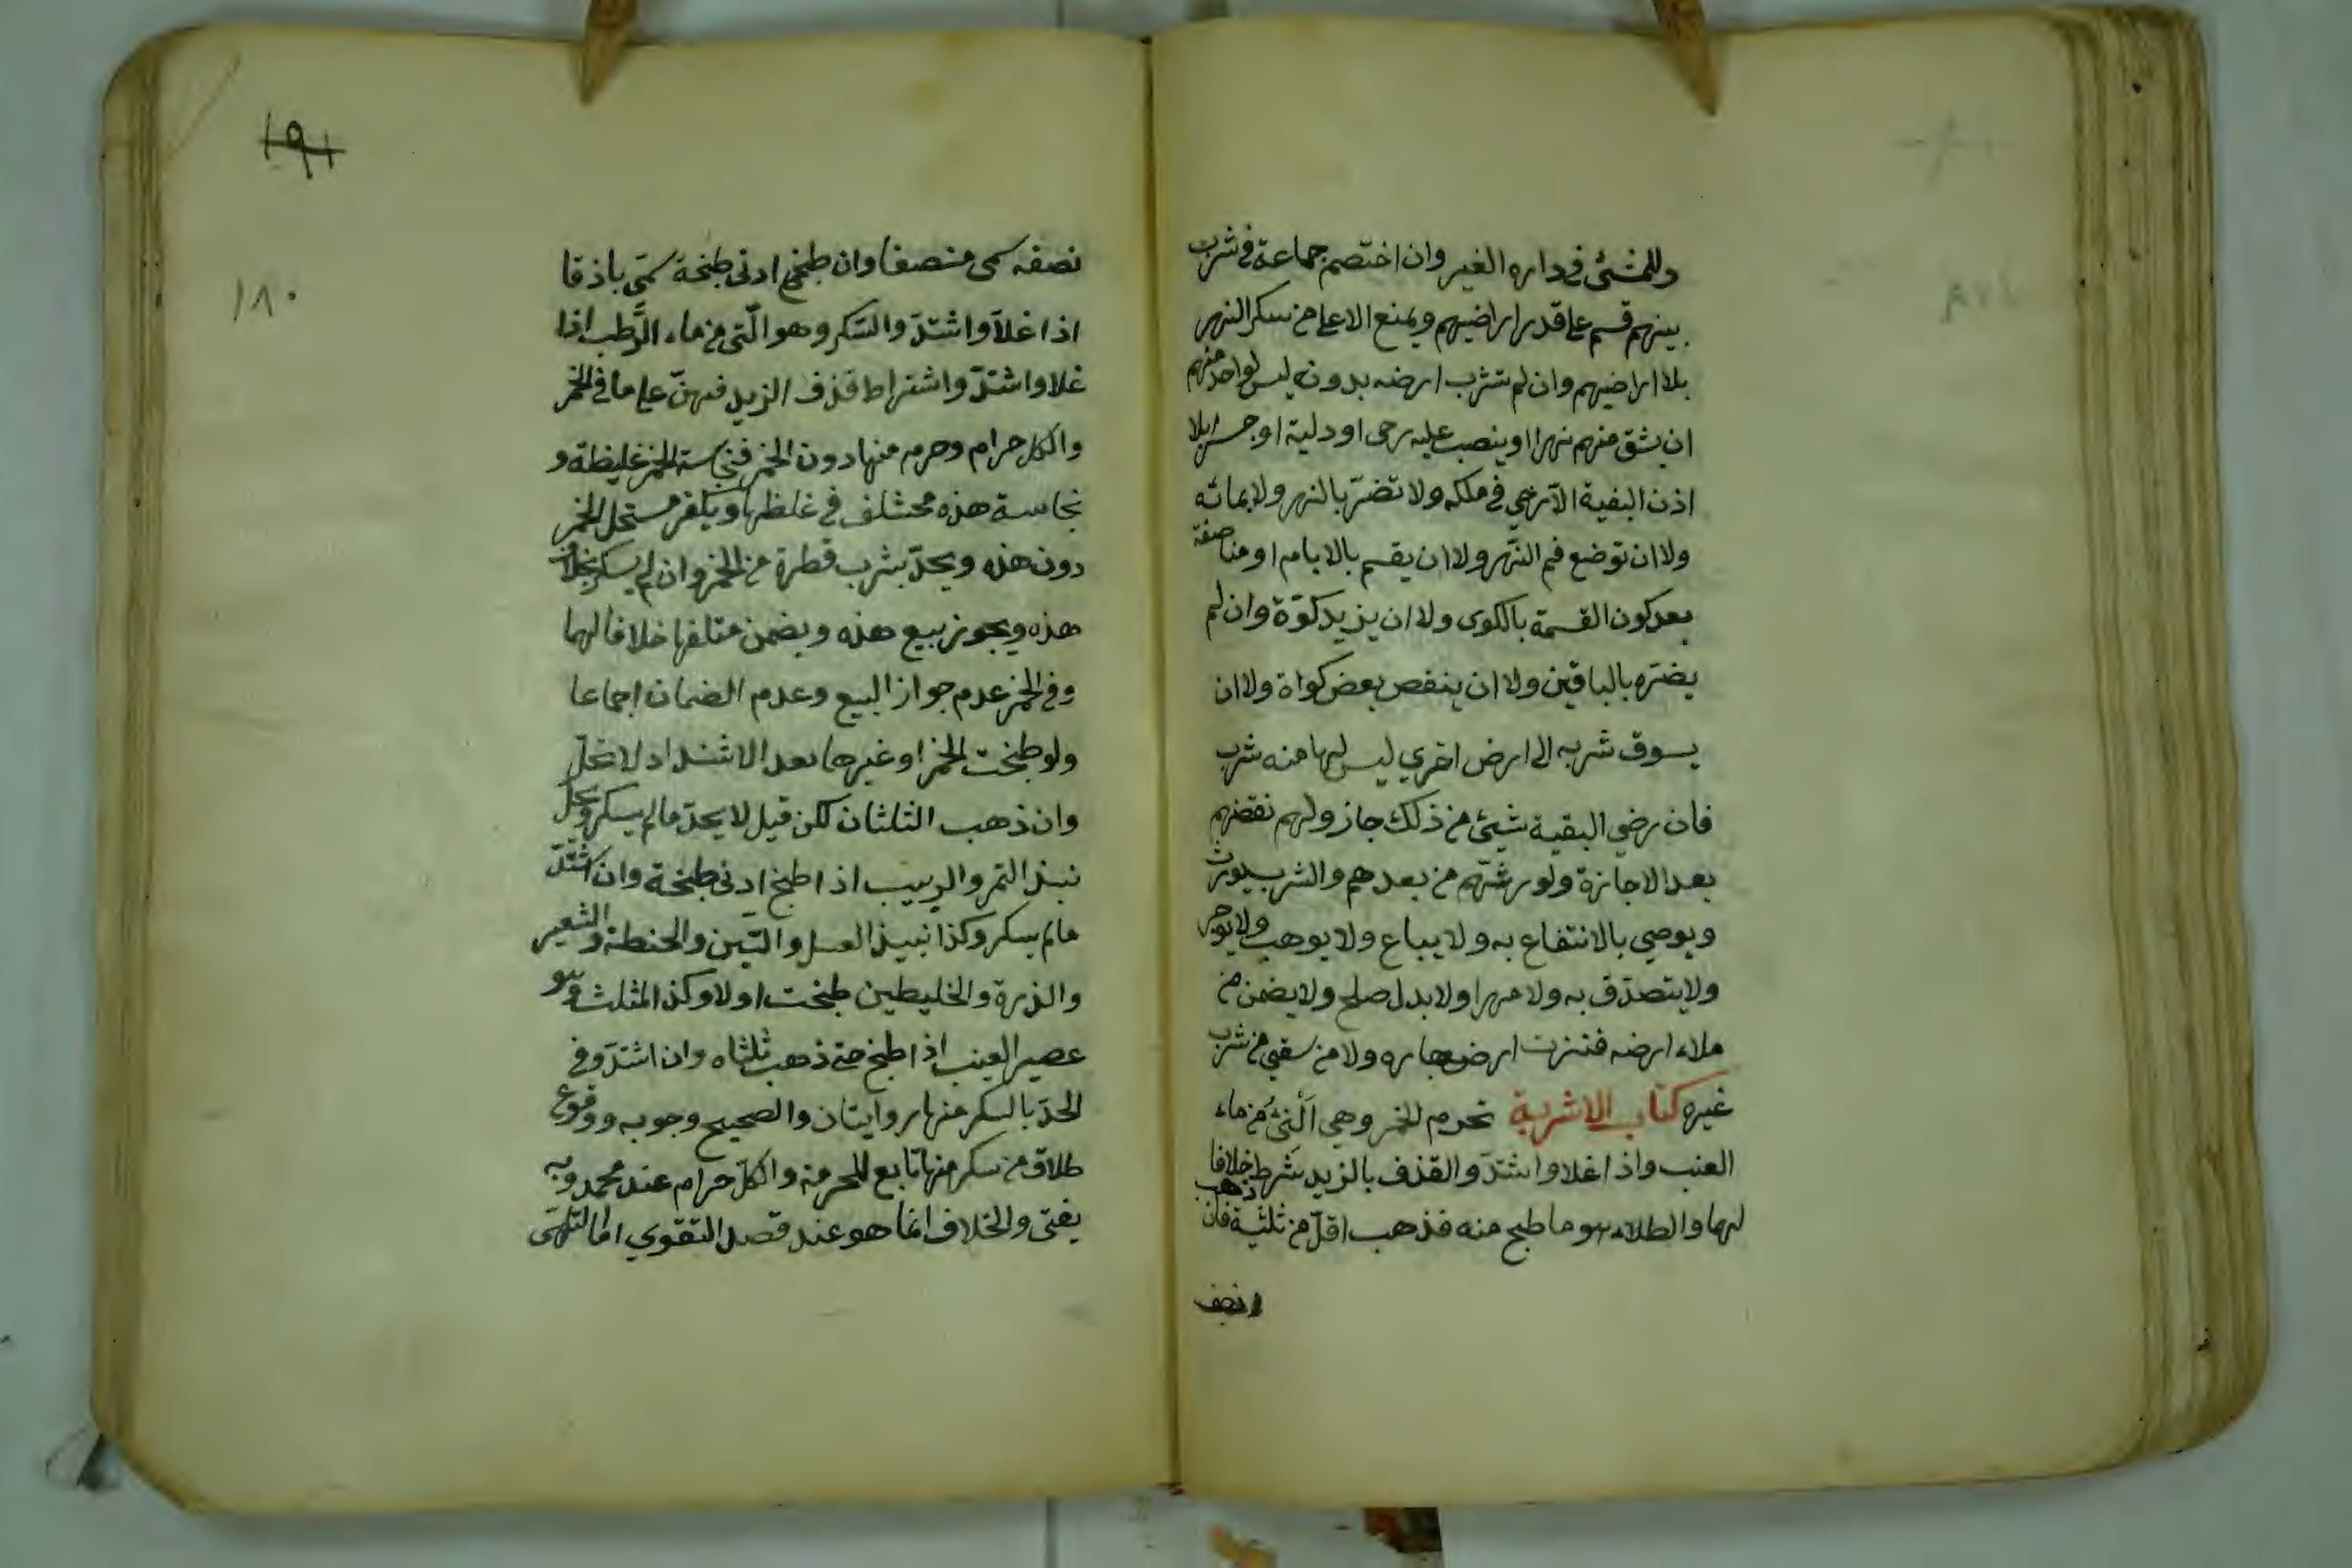 وللمشئ في داره الغير وان اختصم جماعة في شرب
بينهم قسم على قدر اراضيهم ويمنع الاعلى من سكر النهر
بلا اراضيهم وان لم تشرب ارضه بدونه ليس لواحد منهم
ان يشق منهم نهرا او ينصب عليه رحى او دلية او جسرا بلا
اذن البقية الا رحي في ملكه ولا تضرّ بالنهر ولا بمائه
ولا ان توضع فم النّهر ولا ان يقسم بالايام او مناصفة
بعد كون القسمة بالكوى ولا ان يزيد كوّة وان لم
يضرّه بالباقين ولا ان ينقص بعض كواة ولا ان
يسوق شربه الى ارض اخري ليس لها منه شرب
فان رضي البقية شيئ من ذلك جاز ولهم نقضهم
بعد الاجازة ولورثتهم من بعدهم والشرب يورث
ويوصي بالانتفاع به ولا يباع ولا يوهب ولا يوجر
ولا يتصدّق به ولا مهرا ولا بدل صلح ولا يضمن من
ملاء ارضه فتنزت ارض جاره ولا من سقي من شرب
غيره كتاب الاشربة تحرم الخمر وهي النّئ من ماء
العنب واذا غلا واشتدّ والقذف بالزبد شرط خلافا
لهما والطلاء هو ما طبخ منه فذهب اقلّ من ثلثيه فان ذهب
نصف
١٩١
١٨٠
نصفه سمى منصفا وان طبخ ادنى طبخة سمّى باذقا
اذا غلا واشتدّ والسّكر وهو النّى من ماء الرّطب اذا
غلا واشتدّ واشتراط قذف الزبد فيهنّ على ما في الخمر
والكل حرام وحرمه منها دون الخمر فنجاسة الخمر غليظة و
نجاسة هذه مختلف في غلظها ويكفر مستحل الخمر
دون هذه ويحدّ بشرب قطرة من الخمر وان لم يسكر بخلاف
هذه ويجوز بيع هذه ويضمن متلفها خلافا لهما
وفي الخمر عدم جواز البيع وعدم الضمان اجماعا
ولو طبخت الخمر او غيرها بعد الاشتداد لا تحلّ
وان ذهب الثلثان لكن قيل لا يحدّ ما لم يسكر ويحلّ
نبيذ التمر والزبيب اذا طبخ ادنى طبخة وان اشتدّ
ما لم يسكر وكذا نبيذ العسل والتّين والحنطة والشعير
والذرة والخليطين طبخت اولا وكذا المثلث وهو
عصير العنب اذا طبخ حتى ذهب ثلثاه وان اشتدّ وفي
الحدّ بالسكر منها روايتان والصحيح وجوبه ووقوع
طلاق من سكر منها تابع للحرمة والكلّ حرام عند محمد وبه
يفتى والخلاف انما هو عند قصد التقوي اما التلهّى